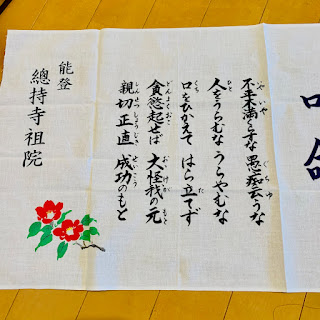 不平不満くらすな 愚痴云うな
人をうらむな うらやむな
口をひかえて はら立てず
貪慾起せば 大怪我の元
親切正直 成功のもと
能登
總持寺祖院